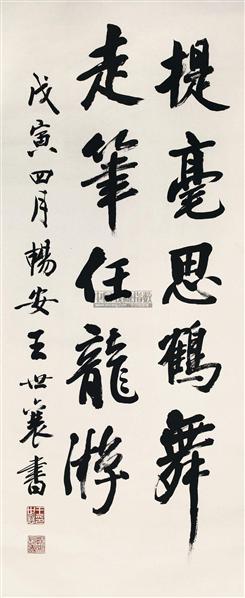 提毫思鶴舞
走筆任龍游
戊寅四月暢安王世襄書